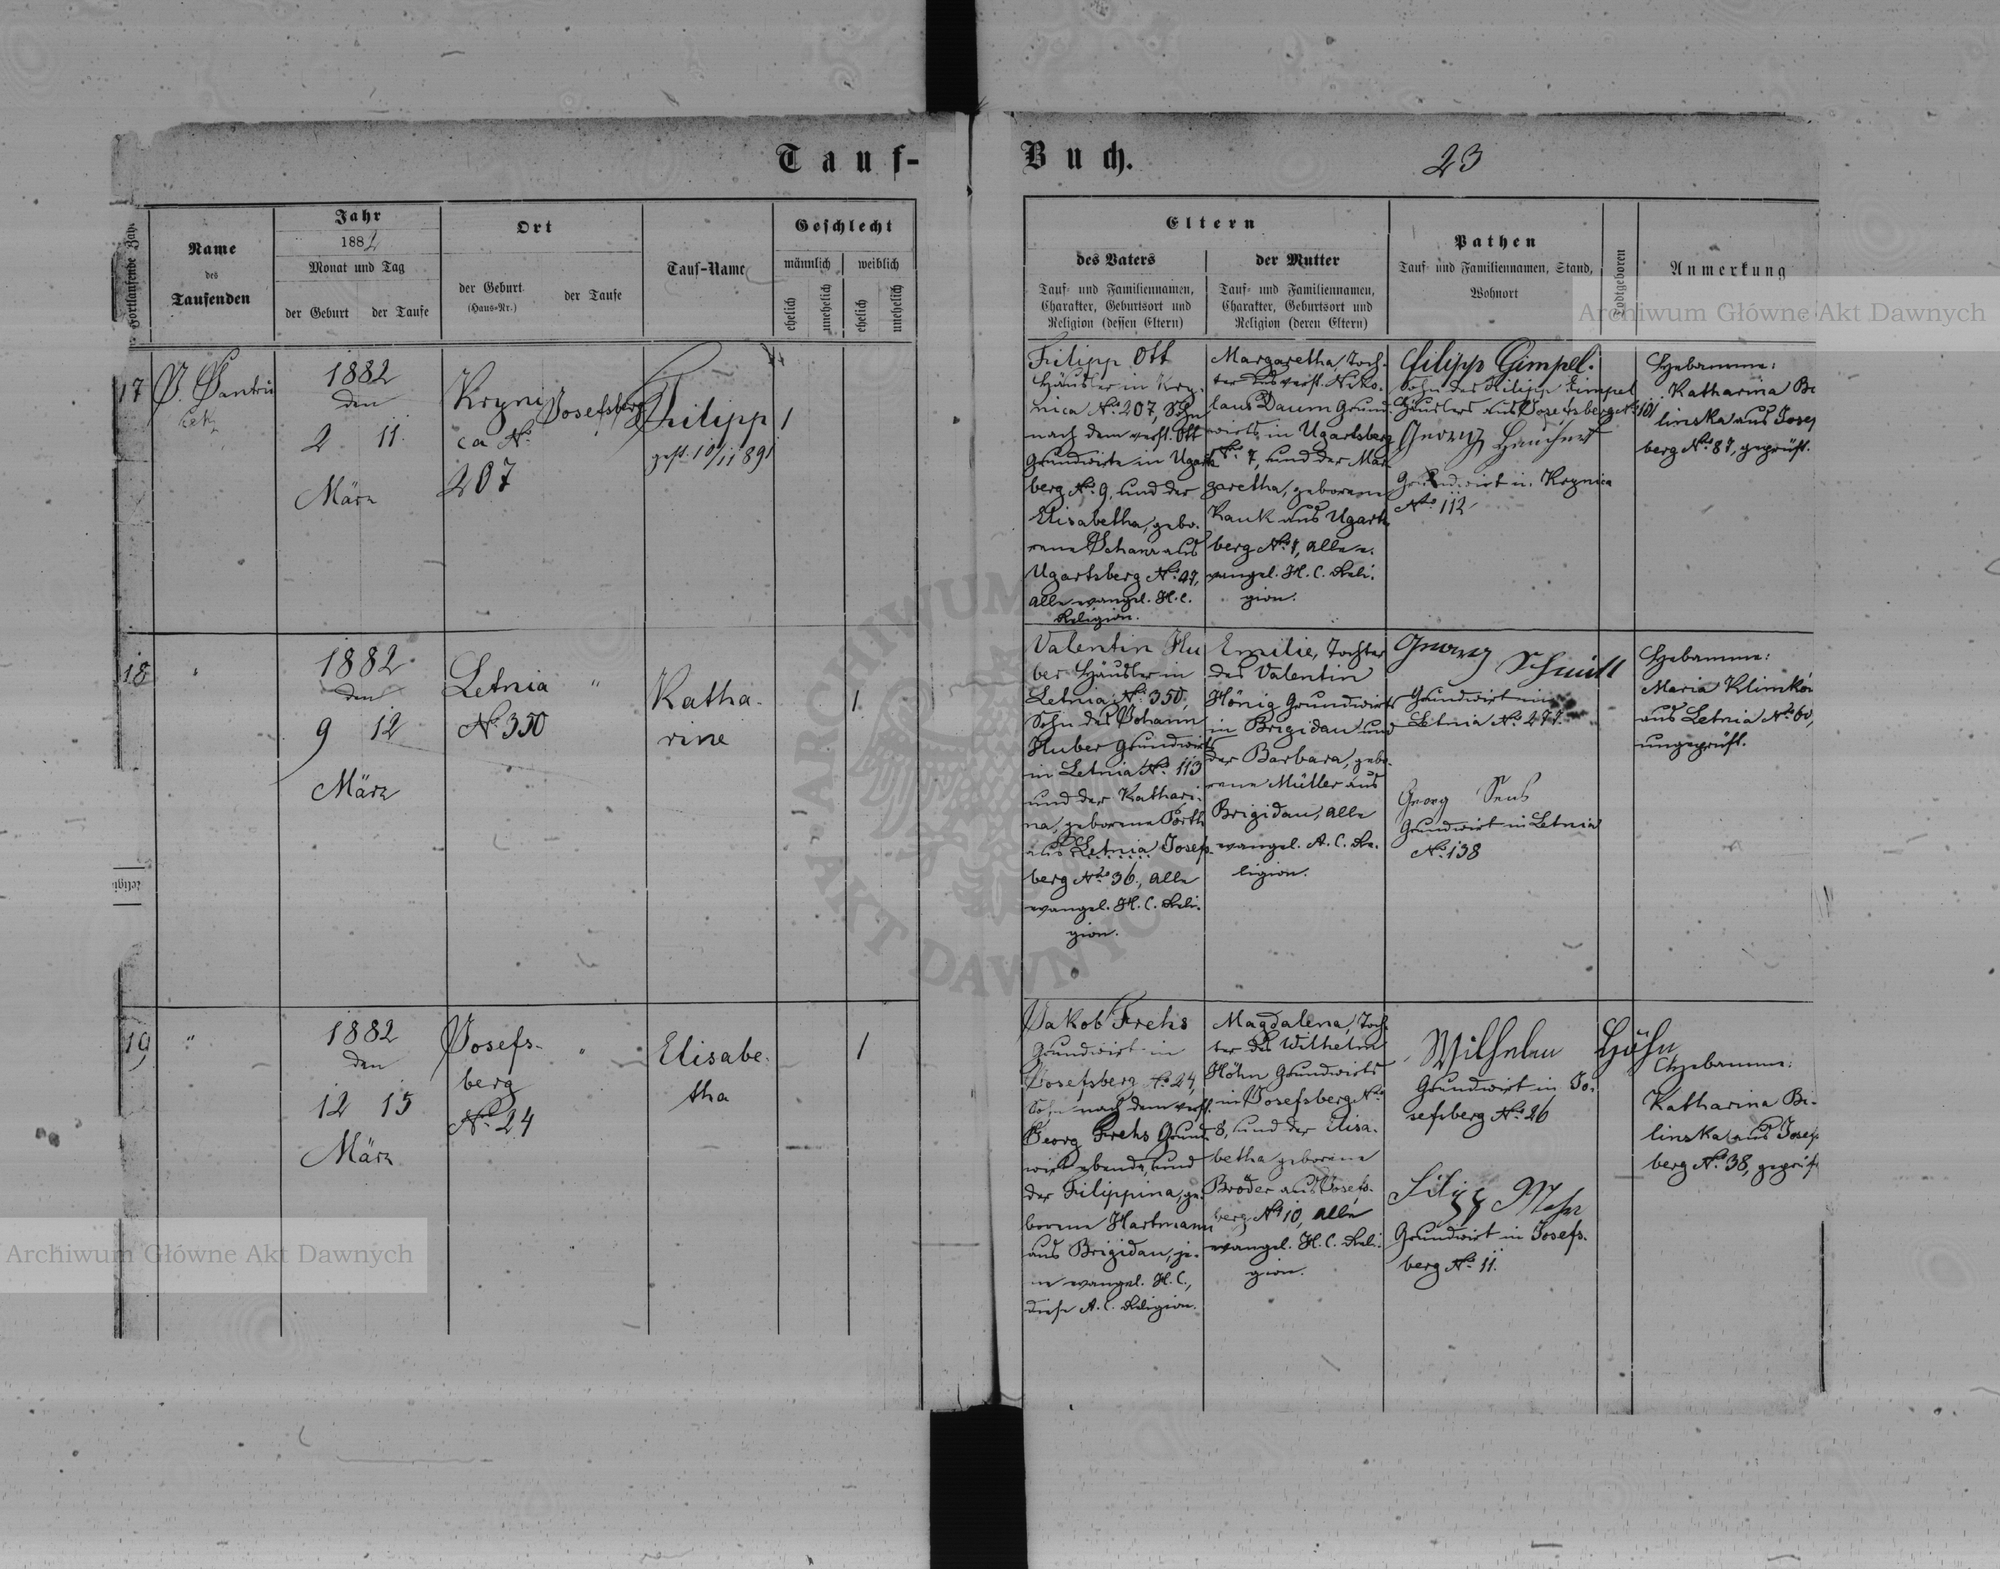 Tauf-
Buch.
23
Fortlaufende Zahl
Name
des
Taufenden
Jahr
1882
Monat und Tag
der Geburt
der Taufe
Ort
der Geburt
(Haus-Nr.)
der Taufe
Tauf-Name
Geschlecht
männlich
weiblich
ehelich
unehelich
ehelich
unehelich
Eltern
des Vaters
Tauf- und Familiennamen,
Charakter, Geburtsort und
Religion (dessen Eltern)
der Mutter
Tauf- und Familiennamen,
Charakter, Geburtsort und
Religion (deren Eltern)
Pathen
Tauf- und Familiennamen, Stand,
Wohnort
Todtgeboren
Anmerkung
17
1882
den
2 11.
März
Kryni
ca No.
207
Josefsberg
Filipp
gest. 10/11 891
1
Filipp Ott
Häusler in Kry-
nica No. 207, Sohn
nach dem verst. Ott
Grundwirts in Ugarts
berg No. 9, und der
Elisabetha, gebo-
rene Schanz aus
Ugartsberg No. 27,
alle evangel. H. C.
Religion.
Margaretha, Toch-
ter des verst. Niko-
laus Daum Grund-
wirts in Ugartsberg
No. 7, und der Mar
garetha, geborene
Kauk aus Ugarts
berg No. 1, alle e-
vangel. H. C. Reli-
gion.
Filipp Gimpel.
Sohn des Filipp Gimpel
Häuslers aus Josefsberg No. 101
Georg
Grundwirt in Krynica
No. 112
Hebamme:
Katharina Be
linska aus Josef
berg No. 87, geprüft.
18
"
1882
den
9 12
März
Letnia
No. 350
"
Katha-
rine
1
Valentin Hu
ber Häusler in
Letnia No. 350,
Sohn des Johann
Huber Grundwirts
in Letnia No. 113
und der Kathari-
na, geborene Porth
aus Letnia Josefs-
berg No. 36, alle
evangel. H. C. Reli-
gion.
Emilie, Tochter
des Valentin
Hönig Grundwirts
in Brigidau und
der Barbara, gebo-
rene Müller aus
Brigidau, alle
evangel. A. C. Re-
ligion.
Georg Schmidt
Grundwirt in
Letnia No. 277.
Georg Sens
Grundwirt in Letnia
No. 138
Hebamme:
Maria Klimków
aus Letnia No. 60,
ungeprüft.
19
"
1882
den
12 15
März
Josefs-
berg
No. 24
"
Elisabe-
tha
1
Jakob Frehs
Grundwirt in
Josefsberg No. 24,
Sohn nach dem verst.
Georg Frehs Grund-
wirt ebenda, und
der Filippina, ge-
borene Hartmann
aus Brigidau, je-
ne evangel. H. C.,
diese A. C. Religion.
Magdalena, Toch-
ter des Wilhelm
Höhn Grundwirts
in Josefsberg No.
8, und der Elisa-
betha geborene
Broder aus Josefs-
berg No. 10, alle
evangel. H. C. Reli-
gion.
Wilhelm Höhn
Grundwirt in Jo-
sefsberg No. 26
Filipp Mohr
Grundwirt in Josefs-
berg No. 11.
Hebamme:
Katharina Be-
linska aus Josef
berg No. 38, geprüft
Archiwum Główne Akt Dawnych
Archiwum Główne Akt Dawnych
ARCHIWUM
AKT DAWNYCH